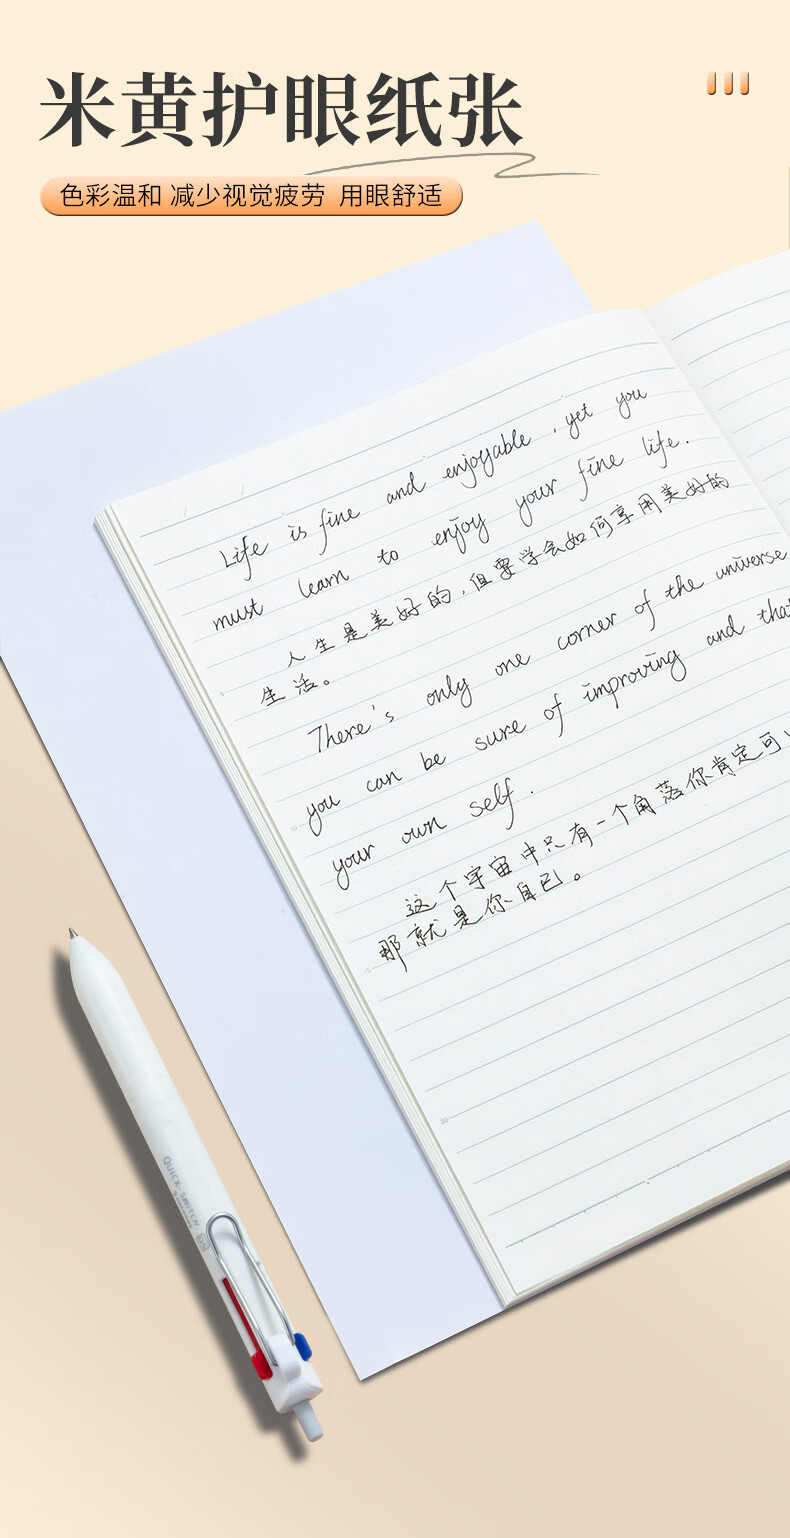 米黄护眼纸张
色彩温和 减少视觉疲劳 用眼舒适
Life is fine and enjoyable , yet you
must learn to enjoy your fine life.
人生是美好的，但要学会如何享用美好的
生活。
There's only one corner of the universe
you can be sure of improving and that
your own self.
这个宇宙中只有一个角落你肯定可
那就是你自己。
QUICK SWITCH